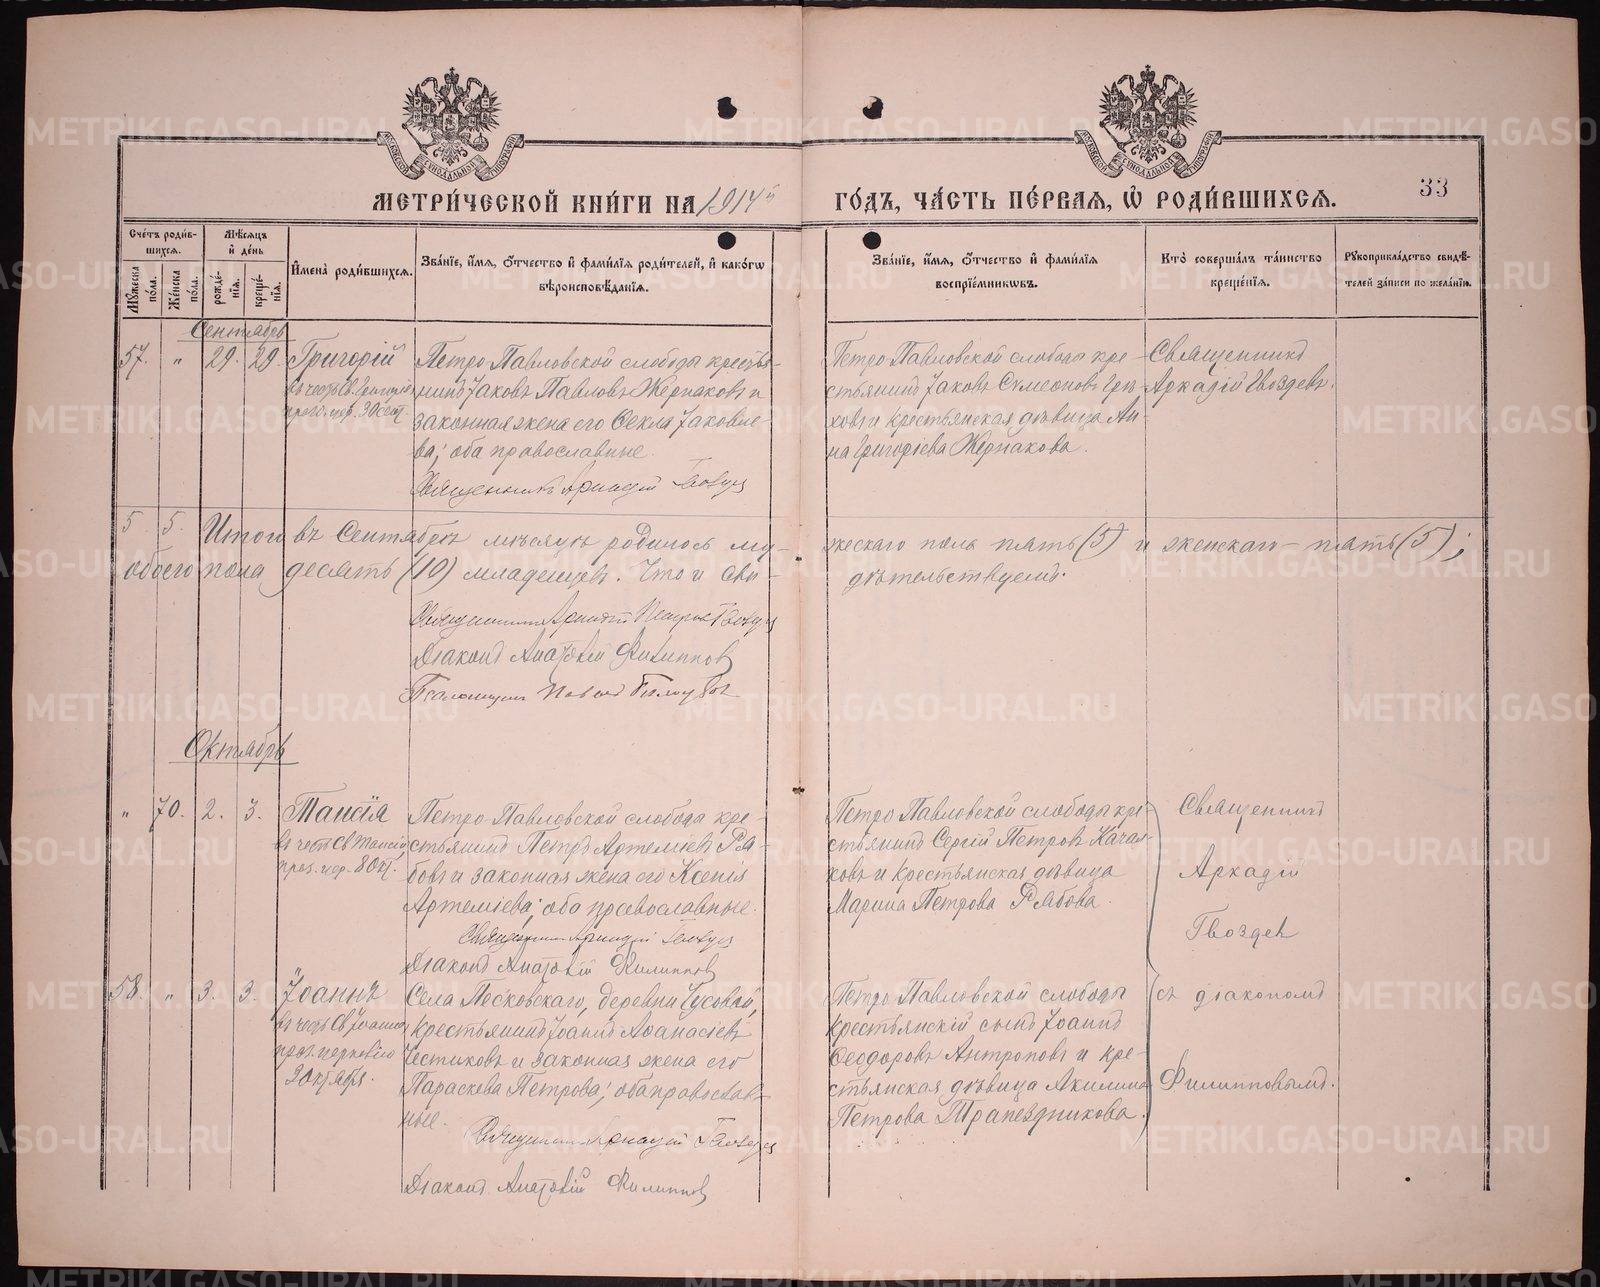 МЕТРИ́ЧЕСКОЙ КНИ́ГИ НА 1914й ГО́ДЪ, ЧА́СТЬ ПЕ́РВАЯ, Ѡ РОДИ́ВШИХСЯ.
33
Сче́тъ роди́в-
шихся.
Му́жеска по́ла.
Же́нска по́ла.
Мѣ́сяцъ
и҆ де́нь
рожде́-
нїя.
креще́-
нїя.
И҆мена̀ роди́вшихся.
Зва́нїе, и҆́мя, ѻ҆́тчество и҆ фами́лїя роди́телей, и҆ како́гѡ
вѣроисповѣ́данїя.
Зва́нїе, и҆́мя, ѻ҆́тчество и҆ фами́лїя
воспрїе́мникѡвъ.
Кто̀ соверша́лъ та́инство
креще́нїя.
Рꙋкоприкла́дство свидѣ́-
телей за́писи по жела́нїю.
Сентябрь
57. " 29. 29. Григорій
въ честь Св. Григорія
празд. цер. 30 сент.
Петро Павловской слободы крестья-
нинъ Іаковъ Павловъ Жернаковъ и
законная жена его Ѳекла Іаковле-
ва; оба православные.
Священникъ Аркадій Гвоздев
Петро Павловской слободы кре-
стьянинъ Іаковъ Сѵмеоновъ Грѣ-
ховъ и крестьянская дѣвица Ан-
на Григоріева Жернакова.
Священникъ
Аркадій Гвоздевъ.
5. 5. Итого въ Сентябрѣ мѣсяцѣ родилось му-
жескаго пола пять (5) и женскаго – пять (5);
обоего пола десять (10) младенцев. Что и сви-
дѣтельствуемъ.
Священникъ Аркадій Петров Гвоздев
Діаконъ Анатолій Филиппов
Псаломщик
Октябрь
" 70. 2. 3. Таисія
въ честь Св. Таисіи,
праз. цер. 8 окт.
Петро Павловской слободы кре-
стьянинъ Петръ Артеміевъ Ря-
бовъ и законная жена его Ксенія
Артеміева; оба православные.
Священник Аркадій Гвоздев
Діаконъ Анатолій Филиппов
Петро Павловской слободы кре-
стьянинъ Сергій Петровъ Качал-
ковъ и крестьянская дѣвица
Марина Петрова Рябова.
Священникъ
Аркадій
Гвоздев
58. " 3. 3. Іоаннъ
въ честь Св. Іоанна
празд. церковію
3 октября.
Села Песковскаго, деревни Чусовой,
крестьянинъ Іоаннъ Аѳанасіевъ
Чистиковъ и законная жена его
Параскева Петрова; оба православ-
ные.
Священник Аркадій Гвоздев
Діаконъ Анатолій Филиппов
Петро Павловской слободы
крестьянскій сынъ Іоаннъ
Ѳеодоровъ Антроповъ и кре-
стьянская дѣвица Акилина
Петрова Трапезникова.
съ діакономъ
Филипповымъ.
METRIKI.GASO-URAL.RU